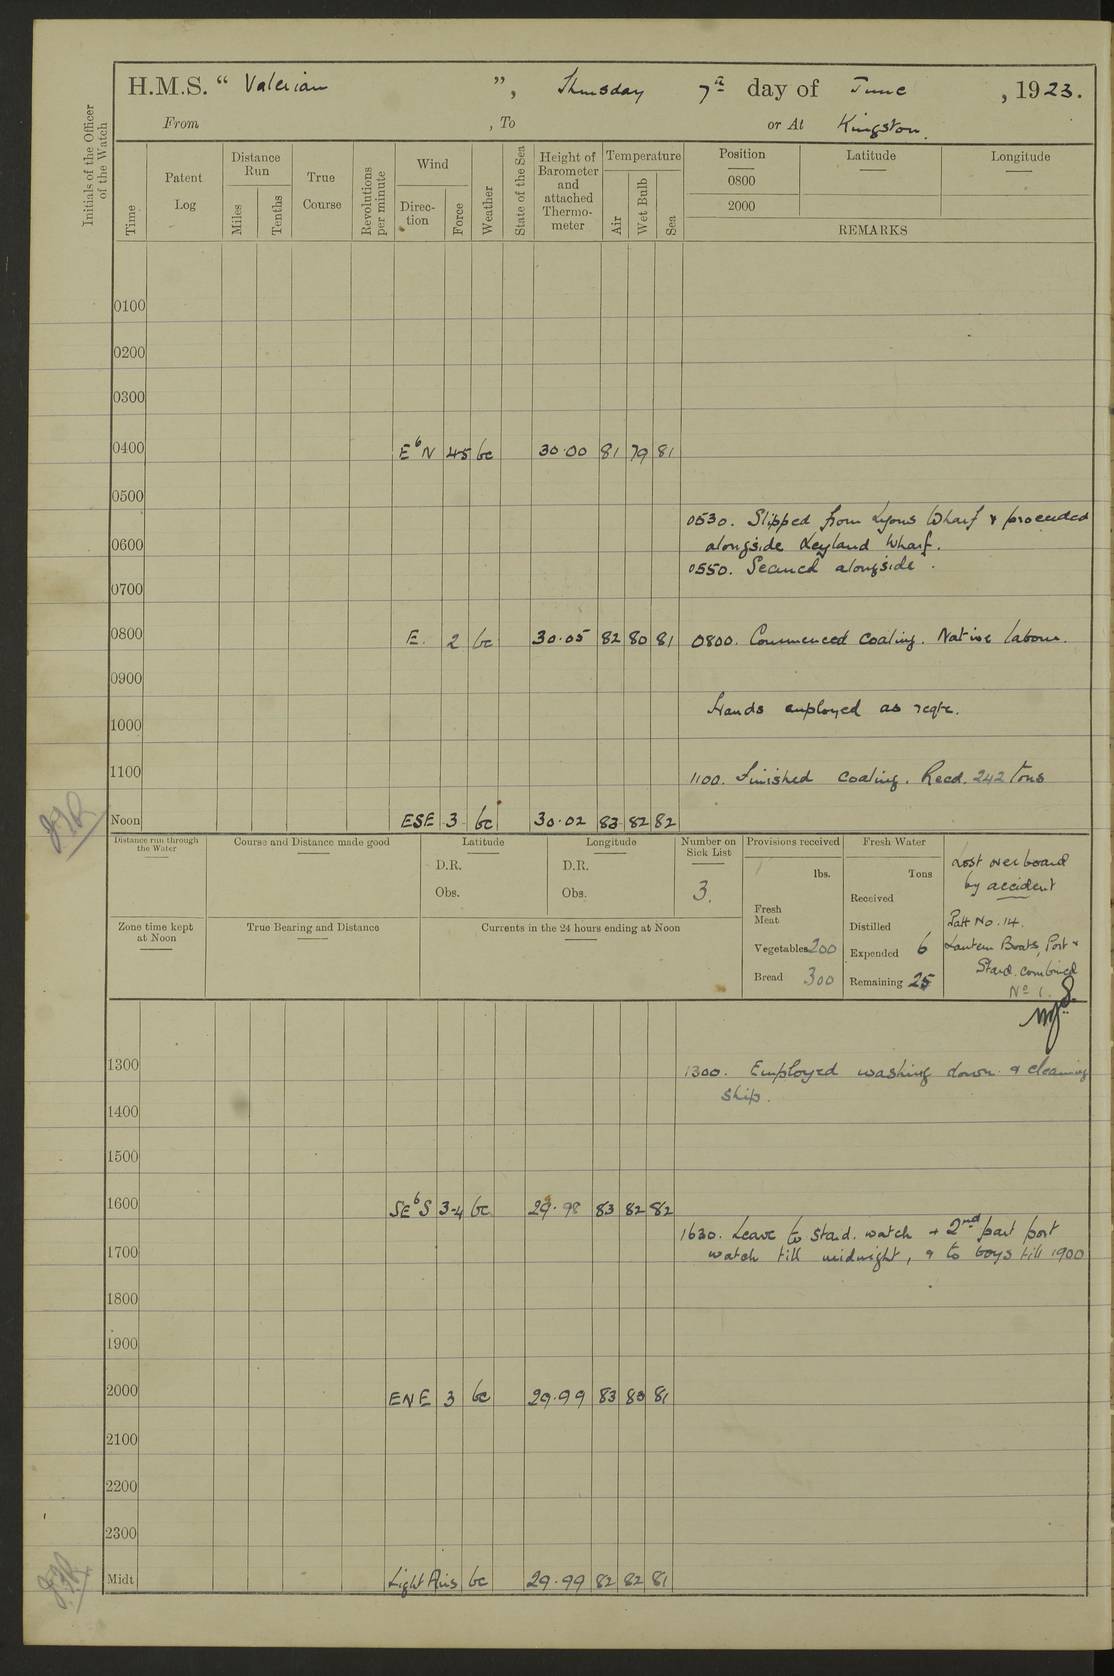 H.M.S. “ Valerian ”, Thursday 7th day of June , 1923.
From , To or At Kingston.
Initials of the Officer of the Watch
Time
Patent Log
Distance Run
Miles
Tenths
True Course
Revolutions per minute
Wind
Direc-tion
Force
Weather
State of the Sea
Height of Barometer and attached Thermo-meter
Temperature
Air
Wet Bulb
Sea
Position
0800
2000
Latitude
Longitude
REMARKS
0100
0200
0300
0400 EbN 4-5 bc 30.00 81 79 81
0500
0530. Slipped from Lyons Wharf & proceeded
0600 alongside Leyland Wharf.
0550. Secured alongside.
0700
0800 E. 2 bc 30.05 82 80 81 0800. Commenced coaling. Native labour.
0900
Hands employed as reqte.
1000
1100 1100. Finished coaling. Recd. 242 tons
Noon ESE 3 bc 30.02 83 82 82
Distance run through the Water
Course and Distance made good
Latitude
D.R.
Obs.
Longitude
D.R.
Obs.
Number on Sick List
3.
Provisions received
lbs.
Fresh Meat
Vegetables 200
Bread 300
Fresh Water
Tons
Received
Distilled
Expended 6
Remaining 25
Lost overboard
by accident
Patt No. 14.
Lantern Boats, Port &
Stard. combined
No 1.
Zone time kept at Noon
True Bearing and Distance
Currents in the 24 hours ending at Noon
1300 1300. Employed washing down & cleaning
ship.
1400
1500
1600 SEbS 3-4 bc 29.98 83 82 82
1630. Leave to Stard. watch & 2nd part port
1700 watch till midnight, & to boys till 1900
1800
1900
2000 ENE 3 bc 29.99 83 83 81
2100
2200
2300
Midt Light Airs bc 29.99 82 82 81